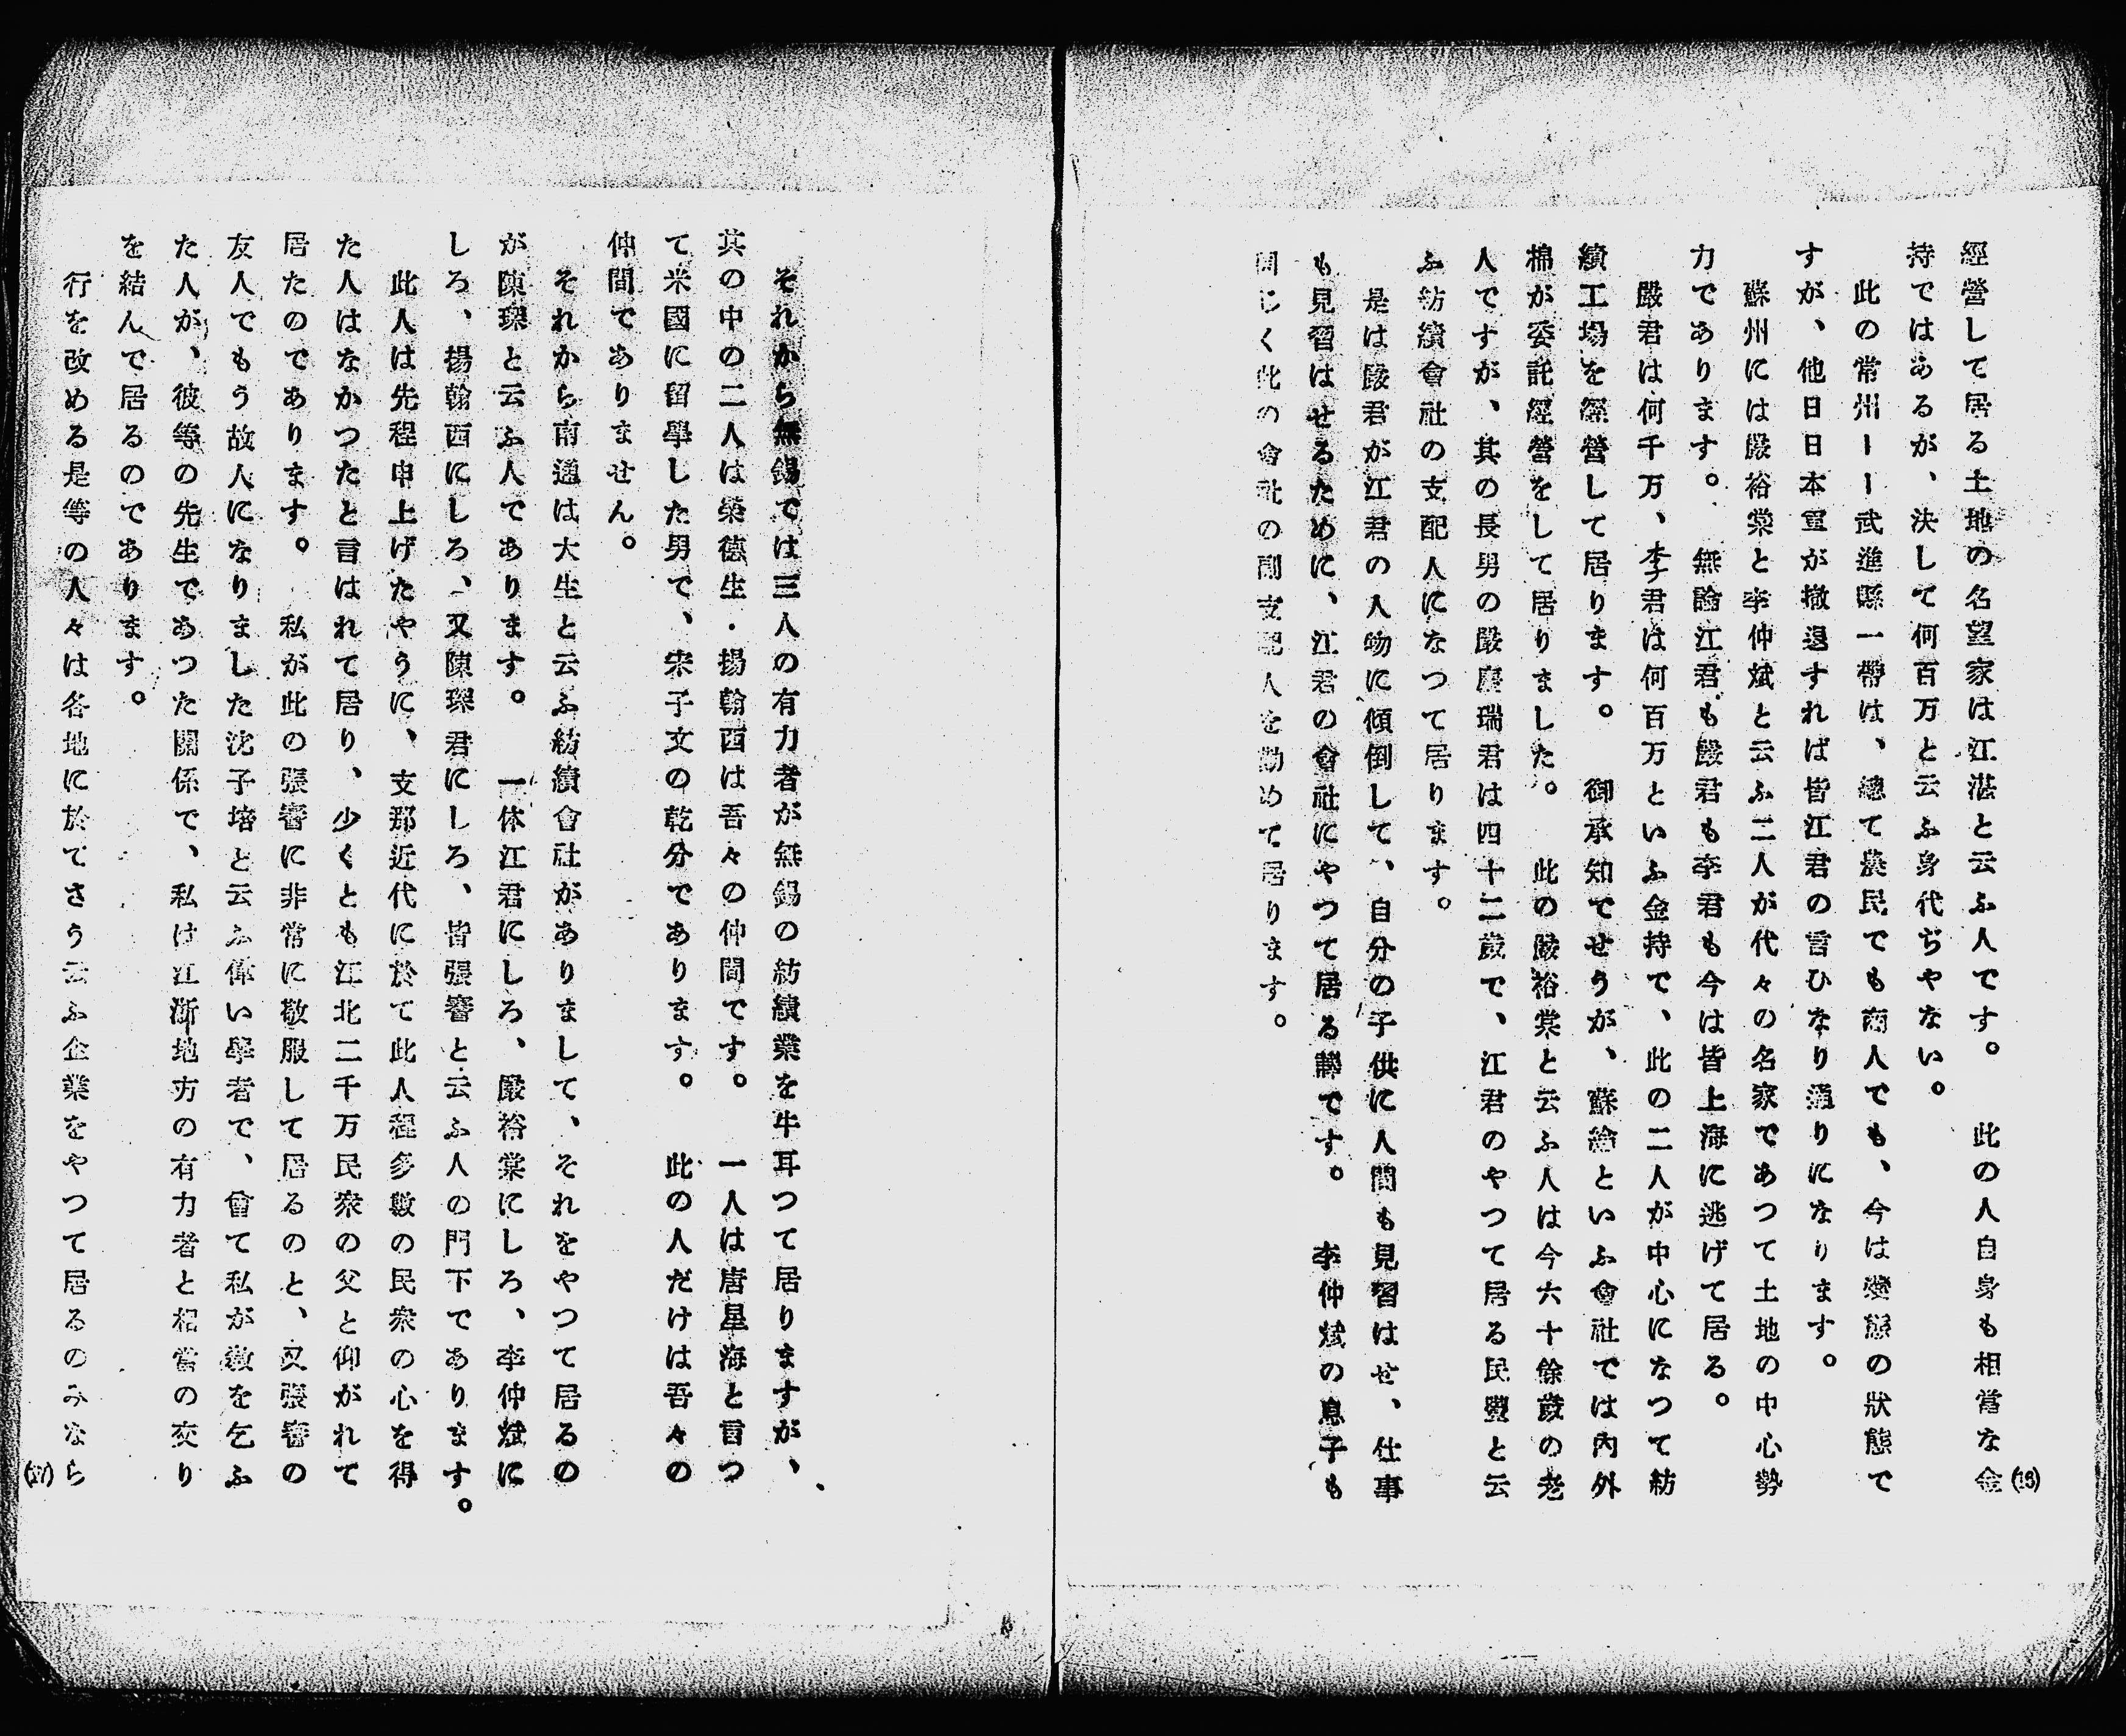 經營して居る土地の名望家は江湛と云ふ人です。　此の人自身も相當な金
持ではあるが、決して何百万と云ふ身代ぢやない。
此の常州ーー武進縣一帶は、總て農民でも商人でも、今は變態の狀態で
すが、他日日本軍が撤退すれば皆江君の言ひなり通りになります。
蘇州には嚴裕棠と李仲斌と云ふ二人が代々の名家であつて土地の中心勢
力であります。　無論江君も嚴君も李君も今は皆上海に逃げて居る。
嚴君は何千万、李君は何百万といふ金持で、此の二人が中心になつて紡
績工場を經營して居ります。　御承知でせうが、蘇綸といふ會社では內外
棉が委託經營をして居りました。　此の嚴裕棠と云ふ人は今六十餘歲の老
人ですが、其の長男の嚴慶瑞君は四十二歲で、江君のやつて居る民豐と云
ふ紡績會社の支配人になつて居ります。
是は嚴君が江君の人物に傾倒して、自分の子供に人間も見習はせ、仕事
も見習はせるために、江君の會社にやつて居る譯です。　李仲斌の息子も
同じく此の會社の副支配人を勤めて居ります。
(16)
それから無錫では三人の有力者が無錫の紡績業を牛耳つて居りますが、
其の中の二人は榮德生・揚翰西は吾々の仲間です。　一人は唐星海と言つ
て米國に留學した男で、宋子文の乾分であります。　此の人だけは吾々の
仲間でありません。
それから南通は大生と云ふ紡績會社がありまして、それをやつて居るの
が陳琛と云ふ人であります。　一体江君にしろ、嚴裕棠にしろ、李仲斌に
しろ、揚翰西にしろ、又陳琛君にしろ、皆張謇と云ふ人の門下であります。
此人は先程申上げたやうに、支那近代に於て此人程多數の民衆の心を得
た人はなかつたと言はれて居り、少くとも江北二千万民衆の父と仰がれて
居たのであります。　私が此の張謇に非常に敬服して居るのと、又張謇の
友人でもう故人になりました沈子培と云ふ偉い學者で、曾て私が敎を乞ふ
た人が、彼等の先生であつた關係で、私は江浙地方の有力者と相當の交り
を結んで居るのであります。
行を改める是等の人々は各地に於てさう云ふ企業をやつて居るのみなら
(17)